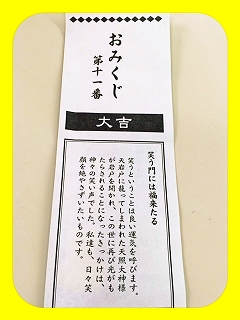 おみくじ
第十一番
大吉
笑う門には福来たる
笑うということは良い運気を呼びます。
天岩戸に籠ってしまわれた天照大神様
が岩戸を開かれ、この世に再び光がも
たらされることになったきっかけは、
神々の笑い声でした。私達も、日々笑
顔を絶やさずいたいものです。